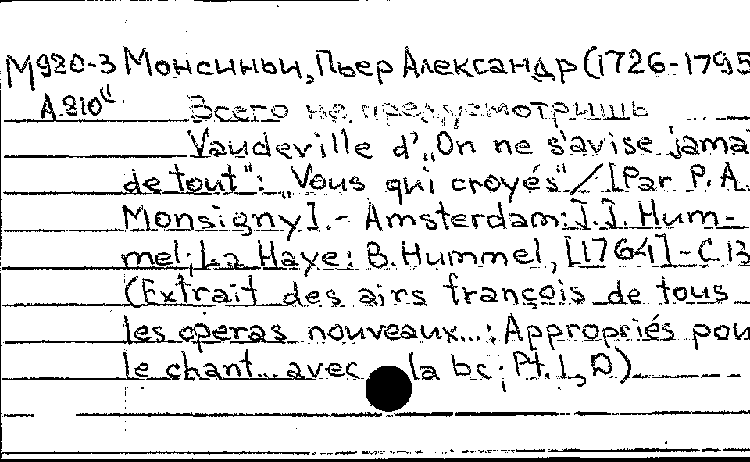 М980-3 Монсиньи, Пьер Александр (1726-1795
А.810" Всего не предусмотришь
Vaudeville d' „On ne s'avise jamai
de tout": „Vous qui croyés" / [Par P. A.
Monsigny]. - Amsterdam: J. J. Hum-
mel; La Haye: B. Hummel, [1764] - С.13
(Extrait des airs françois de tous
les operas nouveaux...: Appropriés pou
le chant... avec la bc; Pt. 1, D)